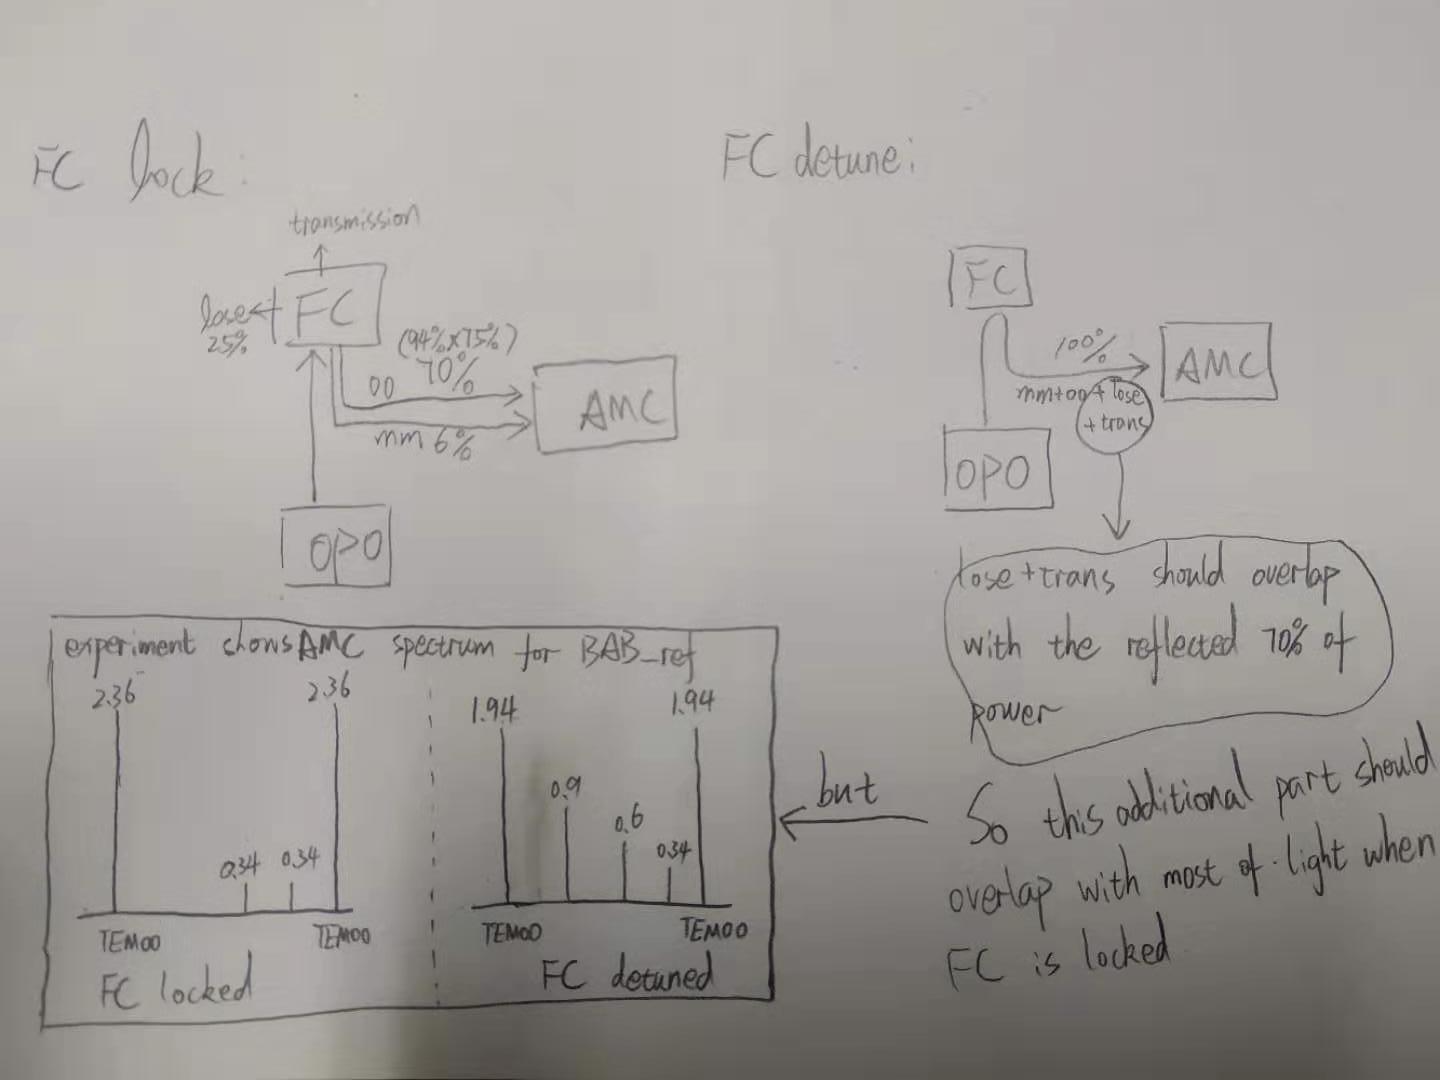 FC lock:
transmission
FC
lose
25%
(94%×75%)
00 70%
mm 6%
AMC
OPO
FC detune:
FC
100%
mm+00+lose
+trans
AMC
OPO
lose+trans should overlap
with the reflected 70% of
power
So this additional part should
overlap with most of light when
FC is locked
but
experiment shows AMC spectrum for BAB_ref
2.36
2.36
0.34
0.34
TEM00
TEM00
FC locked
1.94
1.94
0.9
0.6
0.34
TEM00
TEM00
FC detuned